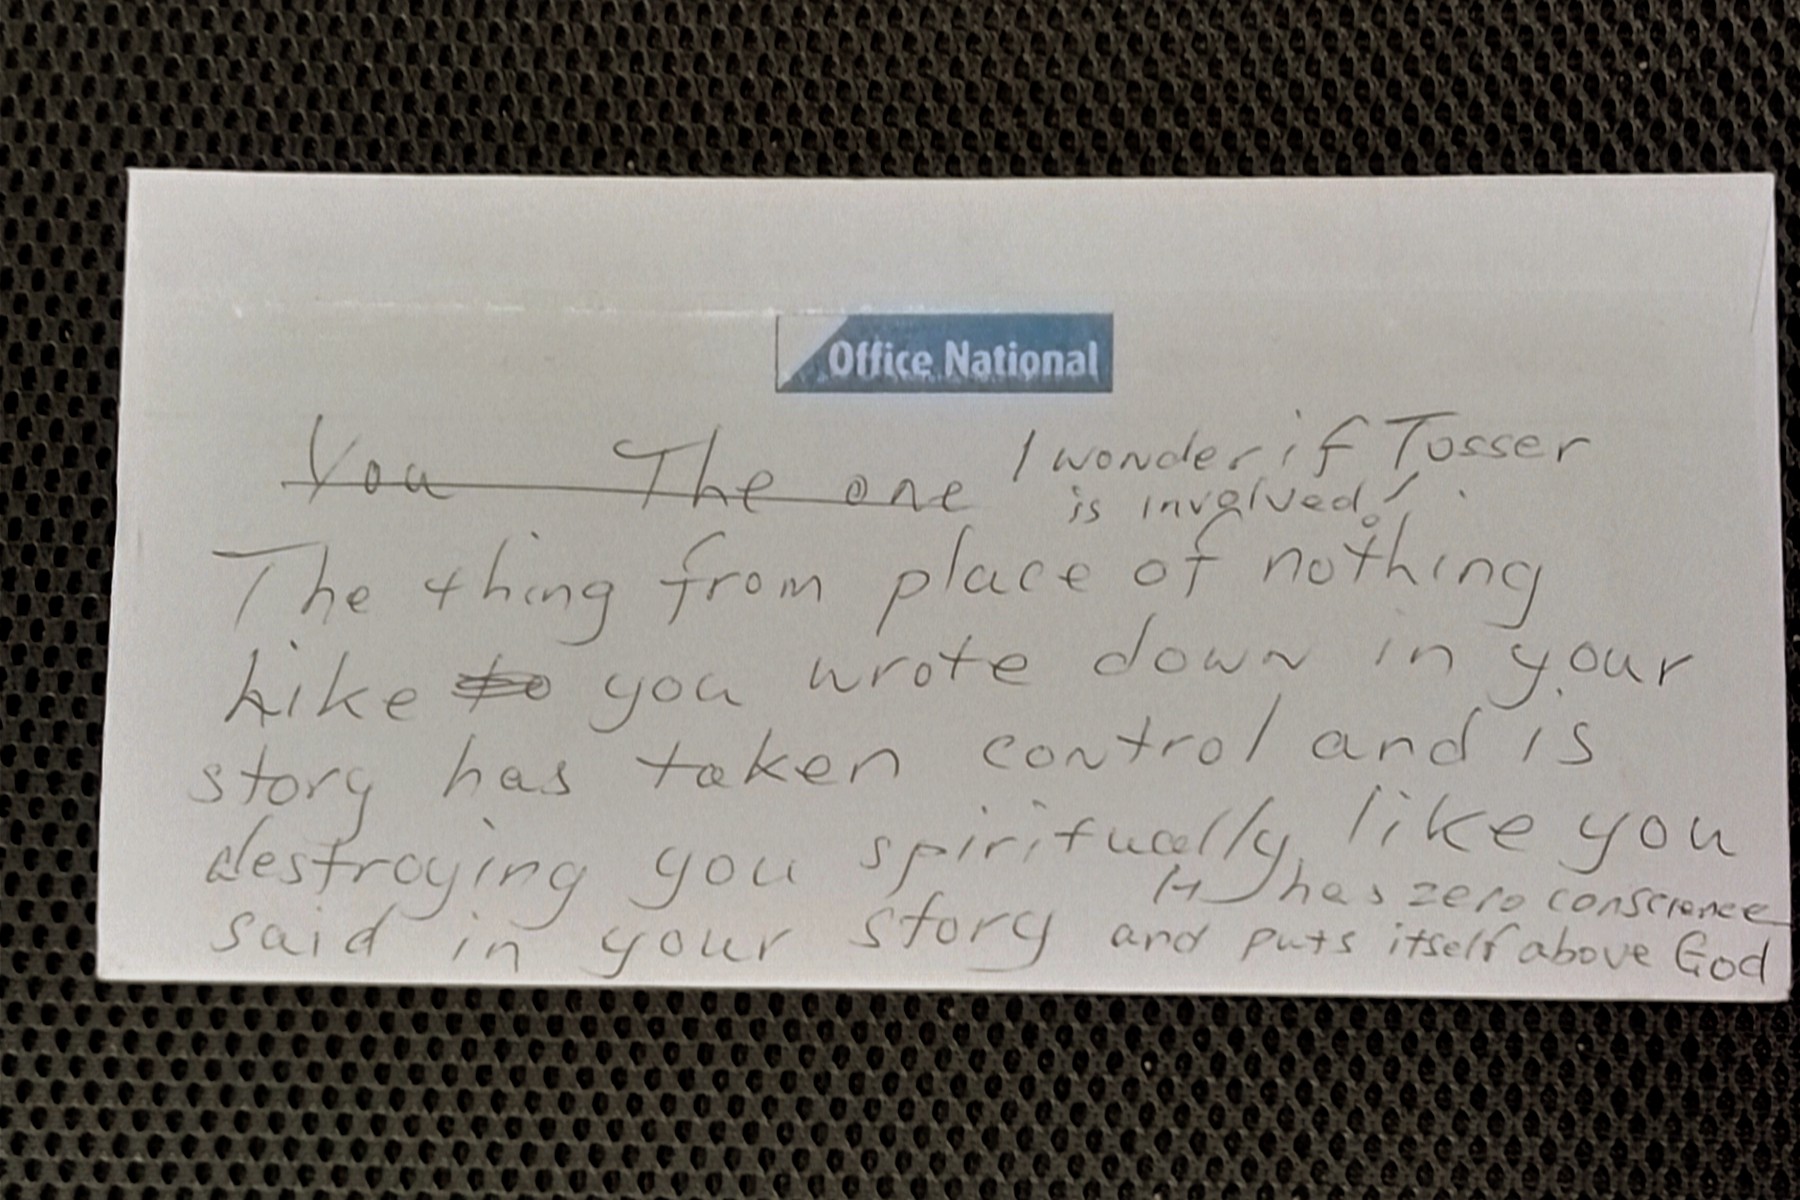 Office National
You The one I wonder if Tosser
is involved!
The thing from place of nothing
Like to you wrote down in your
story has taken control and is
destroying you spiritually, like you
said in your story It has zero conscience
and puts itself above God